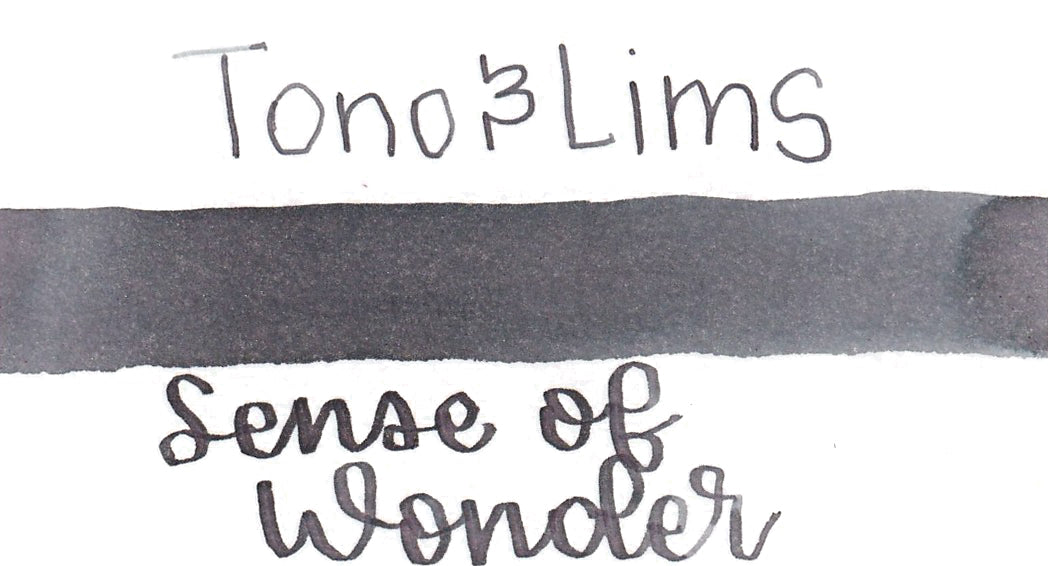 Tono & Lims
Sense of
Wonder